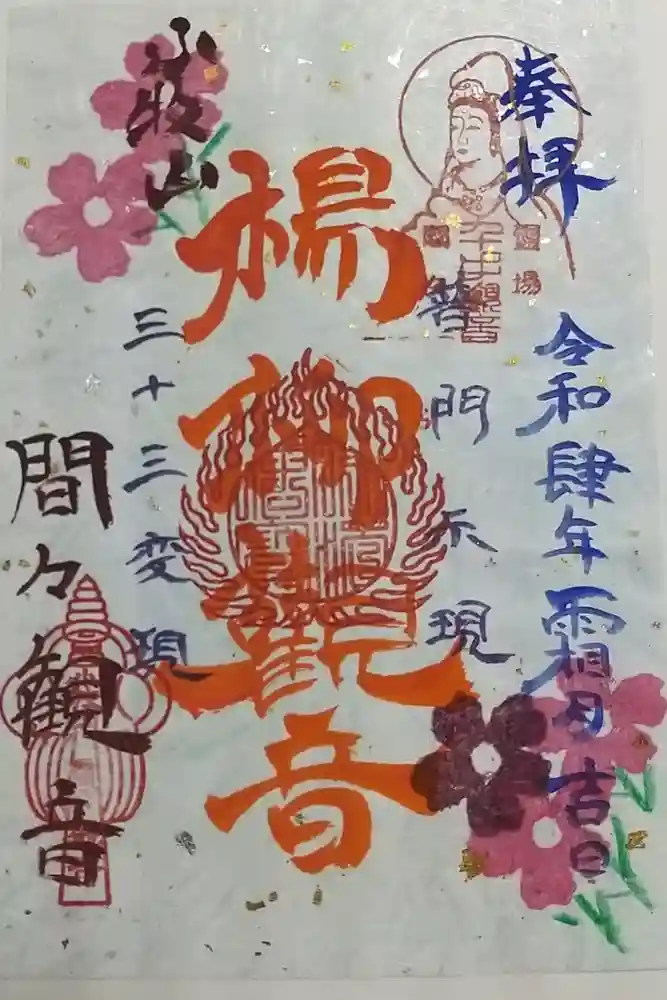 奉拝
令和肆年霜月吉日
霊場
普門示現
楊柳観音
三十三変現
小牧山
間々観音